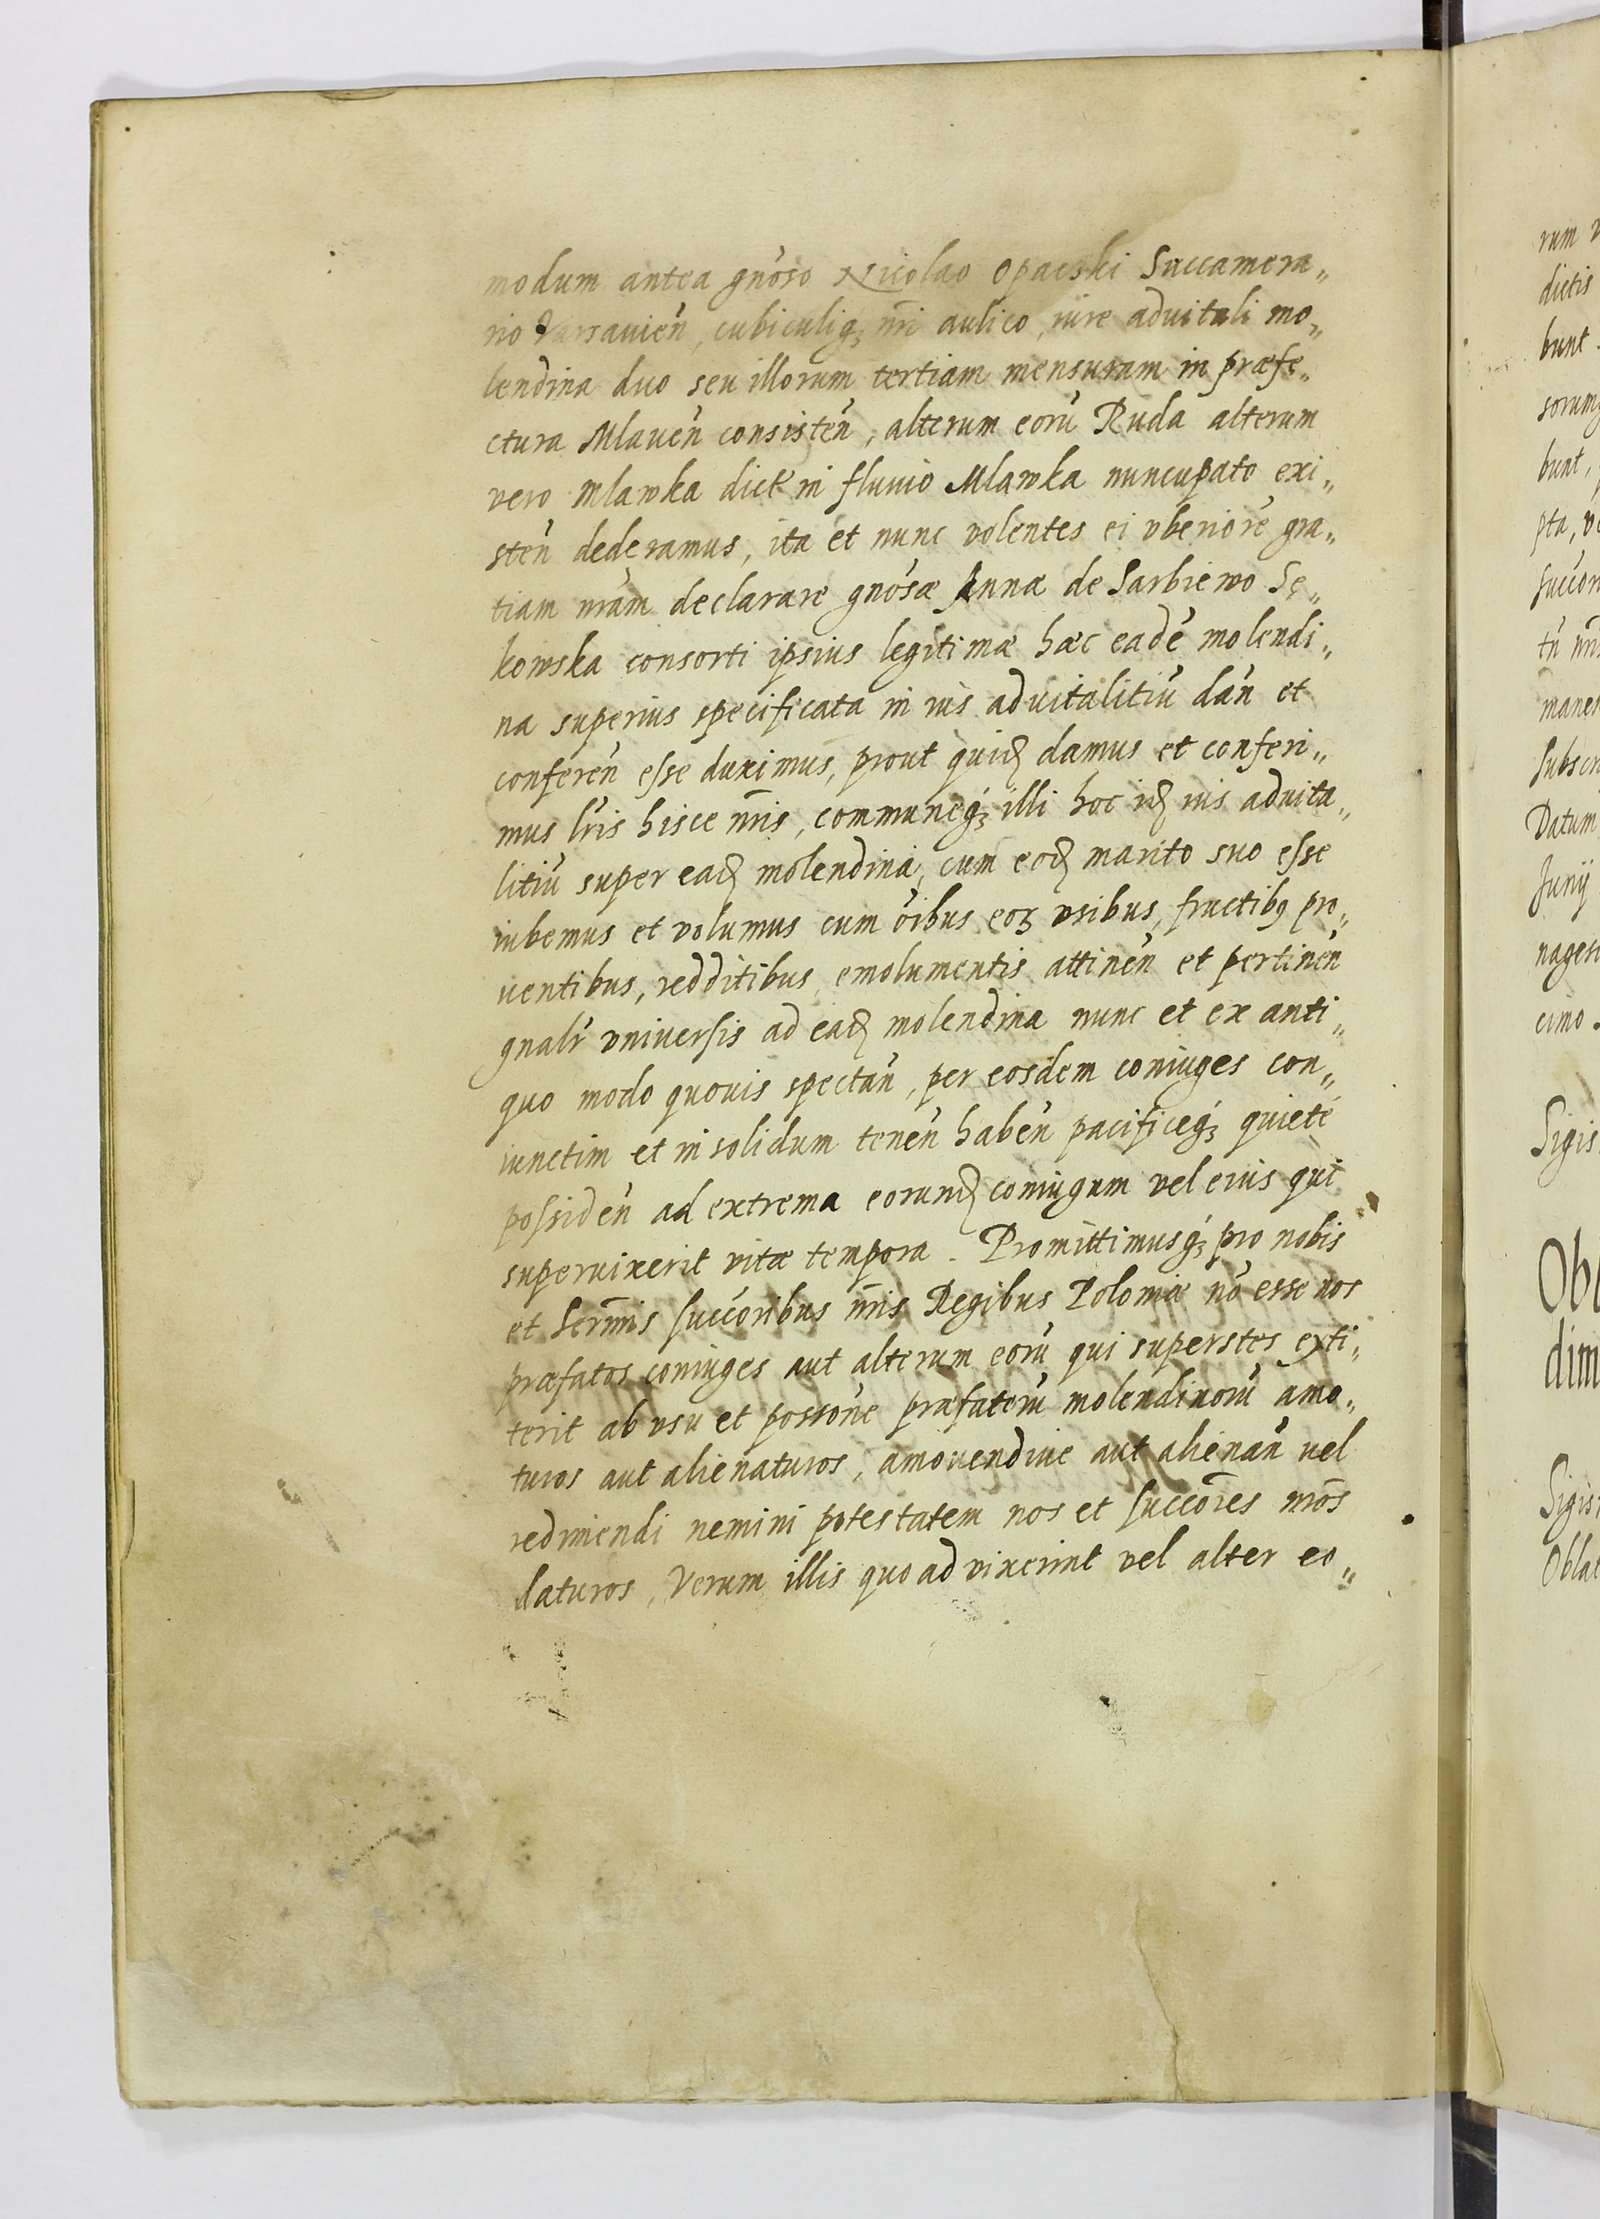 modum antea gnoso Nicolao Opacski Succamera„
rio Varsavien̄, cubiculiq₃ nr̄i aulico, iure advitali mo„
lendina duo seu illorum tertiam mensuram in præfe„
ctura Mlaven̄ consisten̄, alterum eorū Ruda alterum
vero Mlawka dict in fluvio Mlawka nuncupato exi„
sten̄ dederamus, ita et nunc volentes ei vberiorē gra„
tiam nr̄am declarare gnosæ Annæ de Sarbiewo Sę„
kowska consorti ipsius legitimæ hæc eadē molendi„
na superius specificata in ius advitalitiū dan̄ et
conferen̄ esse duximus, prout quid₃ damus et conferi„
mus lr̄is hisce nr̄is, communeq₃ illi hoc id₃ ius advita„
litiū super ead₃ molendina, cum eod₃ marito suo esse
iubemus et volumus cum ōibus eoꝝ vsibus, fructib₉ pro„
ventibus, redditibus, emolumentis attinen̄ et pertinen̄
gnalr̄ vniversis ad ead₃ molendina nunc et ex anti„
quo modo quovis spectan̄, per eosdem coniuges con„
iunctim et in solidum tenen̄ haben̄ pacificeq₃ quiete
possiden̄ ad extrema eorund₃ coniugum vel eius qui
supervixerit vitæ tempora. Promittimusq₃ pro nobis
et Serm̄is succoribus nr̄is Regibus Poloniæ nō esse nos
præfatos coniuges aut alterum eorū qui superstes exti„
terit ab vsu et possōne præfatorū molendinorū amo„
turos aut alienaturos, amovendive aut alienan̄ vel
redimendi nemini potestatem nos et succōres nr̄os
daturos, Verum illis quoad vixerint vel alter eo„
rum
dictis
bunt.
bunt,
pta,
manes
Datum
Junij
cimo.
Sigis
Obl
dim
Sigis
Oblat